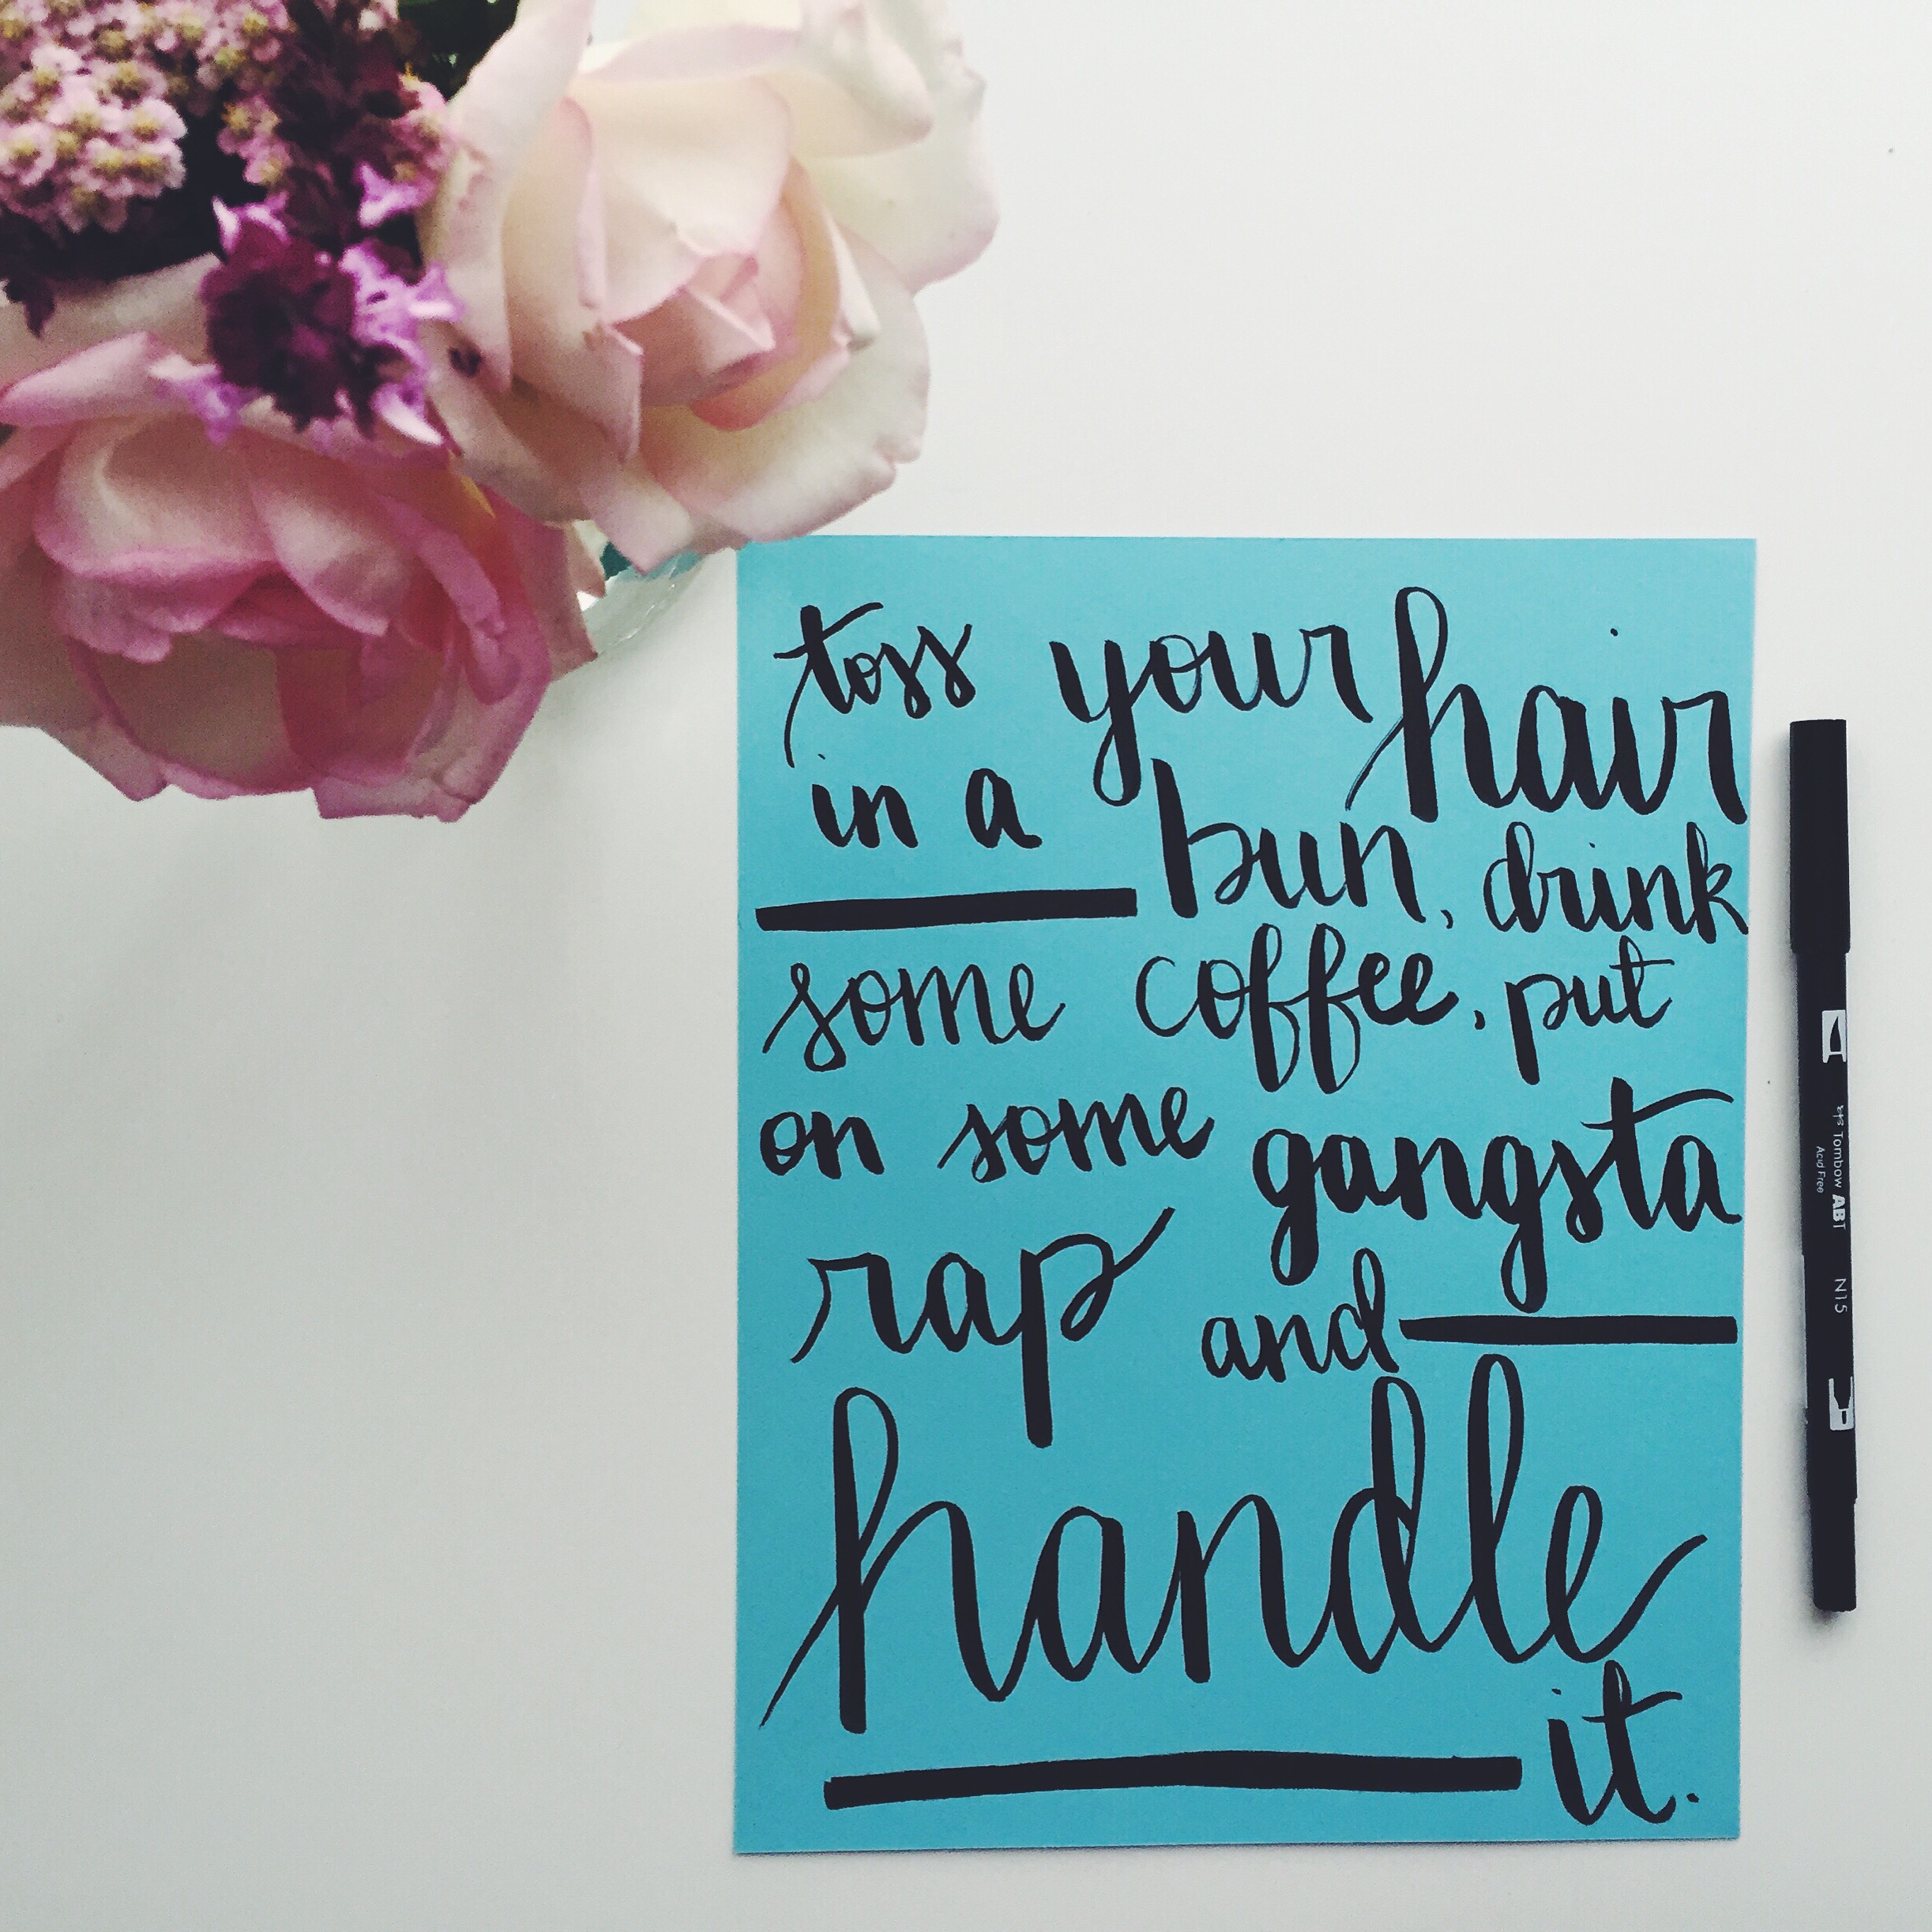 toss your hair
in a bun, drink
some coffee, put
on some gangsta
rap and
handle
it.
Tombow ABT N15
Acid Free